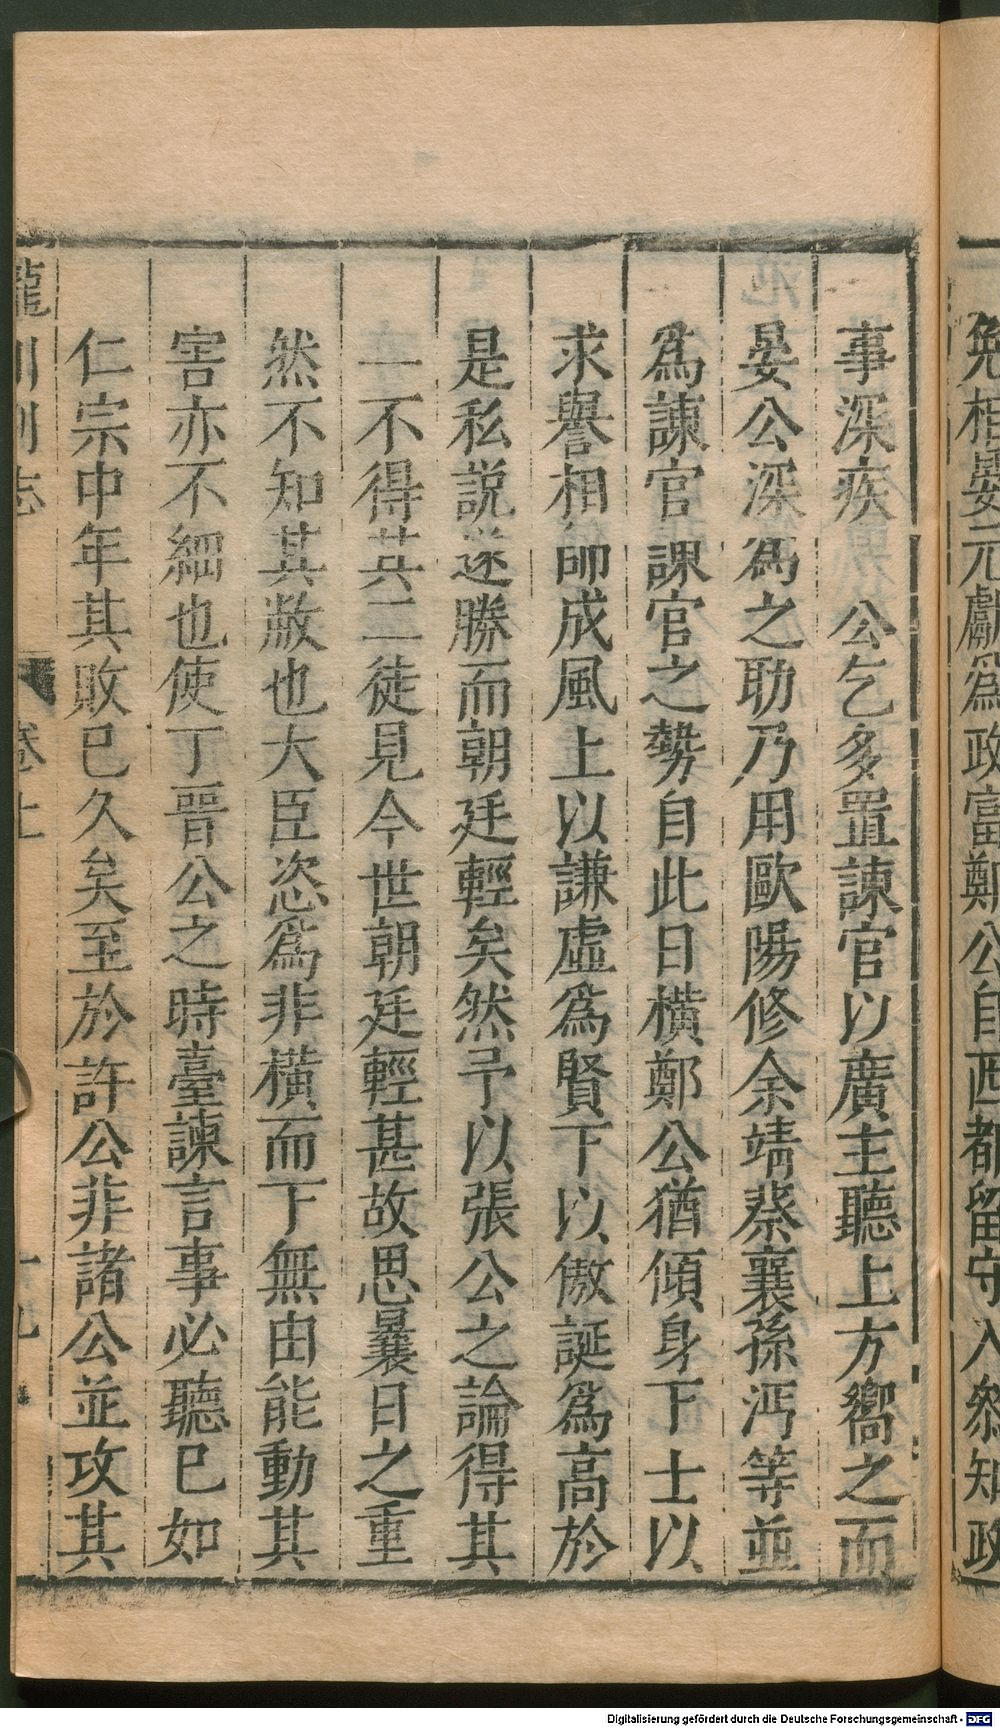 免相晏元獻爲政富鄭公自西都留守入叅知政
事深疾　公乞多置諫官以廣主聽上方嚮之而
晏公深爲之助乃用歐陽修余靖蔡襄孫沔等並
爲諫官　課官之勢自此日橫鄭公猶傾身下士以
求譽相帥成風上以謙虛爲賢下以傲誕爲高於
是私説遂勝而朝廷輕矣然予以張公之論得其
一不得其二徒見今世朝廷輕甚故思曩日之重
然不知其敝也大臣恣爲非橫而下無由能動其
害亦不細也使丁晉公之時臺諫言事必聽已如
仁宗中年其敗已久矣至於許公非諸公並攻其
龍川別志　卷上　十九
Digitalisierung gefördert durch die Deutsche Forschungsgemeinschaft - DFG